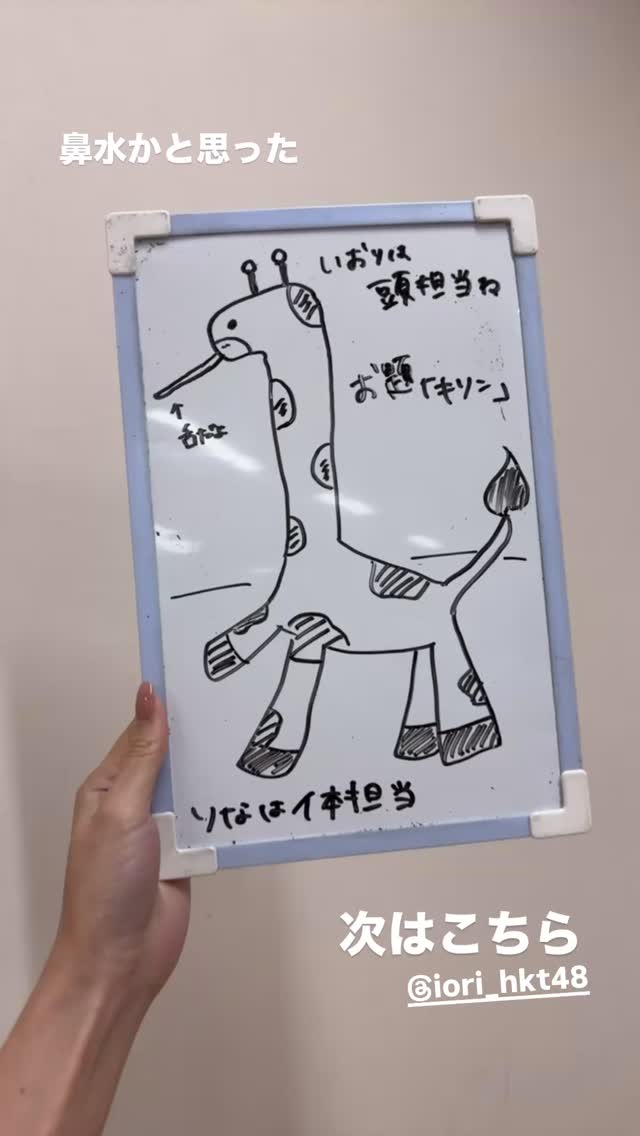 鼻水かと思った
いおりは
頭担当ね
お題「キリン」
↑
舌だよ
りなは体担当
次はこちら
@iori_hkt48